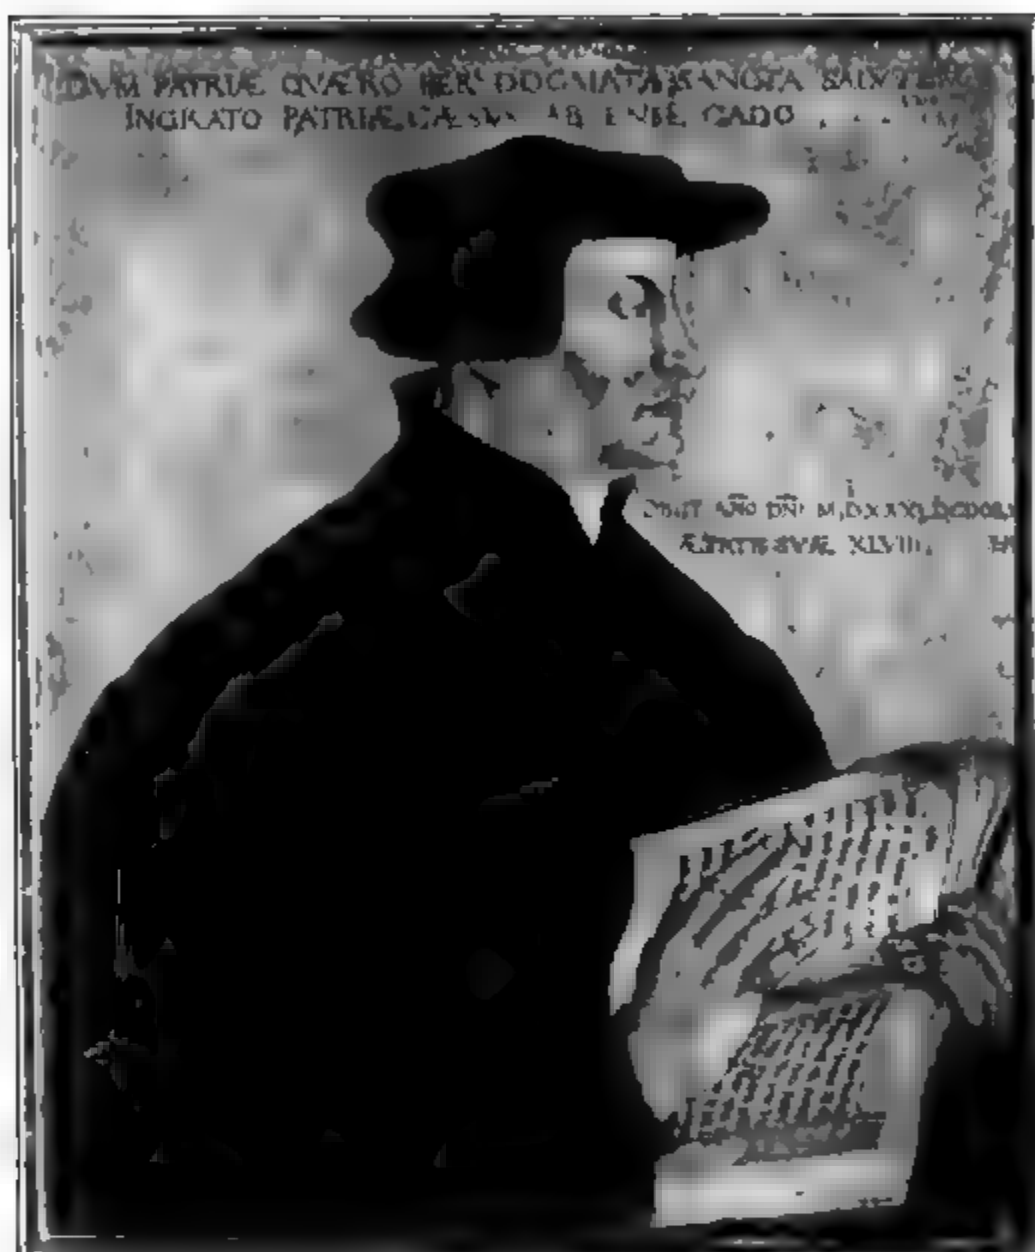 DVM PATRIÆ QVÆRO PER DOGMATA SANCTA SALVTEM
INGRATO PATRIÆ CÆSVS AB ENSE CADO
OBIIT AÑO DÑI M,D,XXXI,
ÆTATIS SVÆ XLVIII,